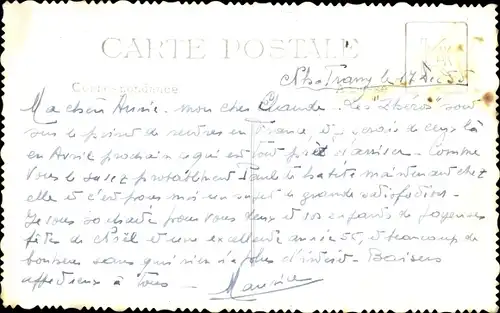 CARTE POSTALE
Nha Trang le 17 Dec 55
Correspondance
Ma chère Annie - mon cher Claude - Les "Zhéros" sont
sur le point de rentrer en France, et je serais là
en Avril prochain ce qui est tout prêt d'arriver. Comme
vous le savez probablement Paule habite maintenant chez
elle et c'est pour moi un sujet de grande satisfaction.
Je vous souhaite pour vous deux et vos enfants de joyeuses
fêtes de Noël et une excellente année 56, et beaucoup de
bonheur sans que rien n'a plus d'intérêt - Baisers
affectueux à tous - Maurice